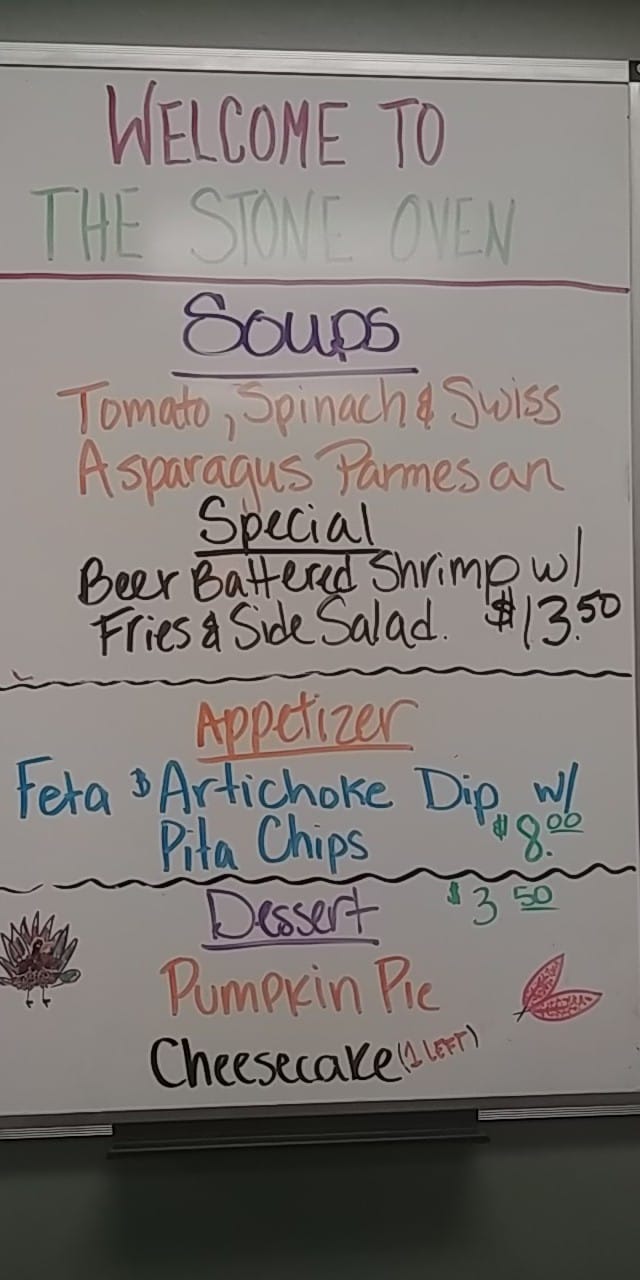 WELCOME TO
THE STONE OVEN
Soups
Tomato, Spinach & Swiss
Asparagus Parmesan
Special
Beer Battered Shrimp w/
Fries & Side Salad. $13.50
Appetizer
Feta & Artichoke Dip w/
Pita Chips $8.00
Dessert $3 50
Pumpkin Pie
Cheesecake (1 LEFT)